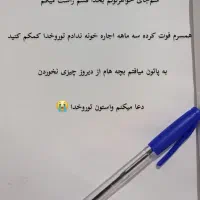 همسرم فوت کرده سه ماهه اجاره خونه ندادم توروخدا کمکم کنید
به پاتون میافتم بچه هام از دیروز چیزی نخوردن
دعا میکنم واستون توروخدا 😭